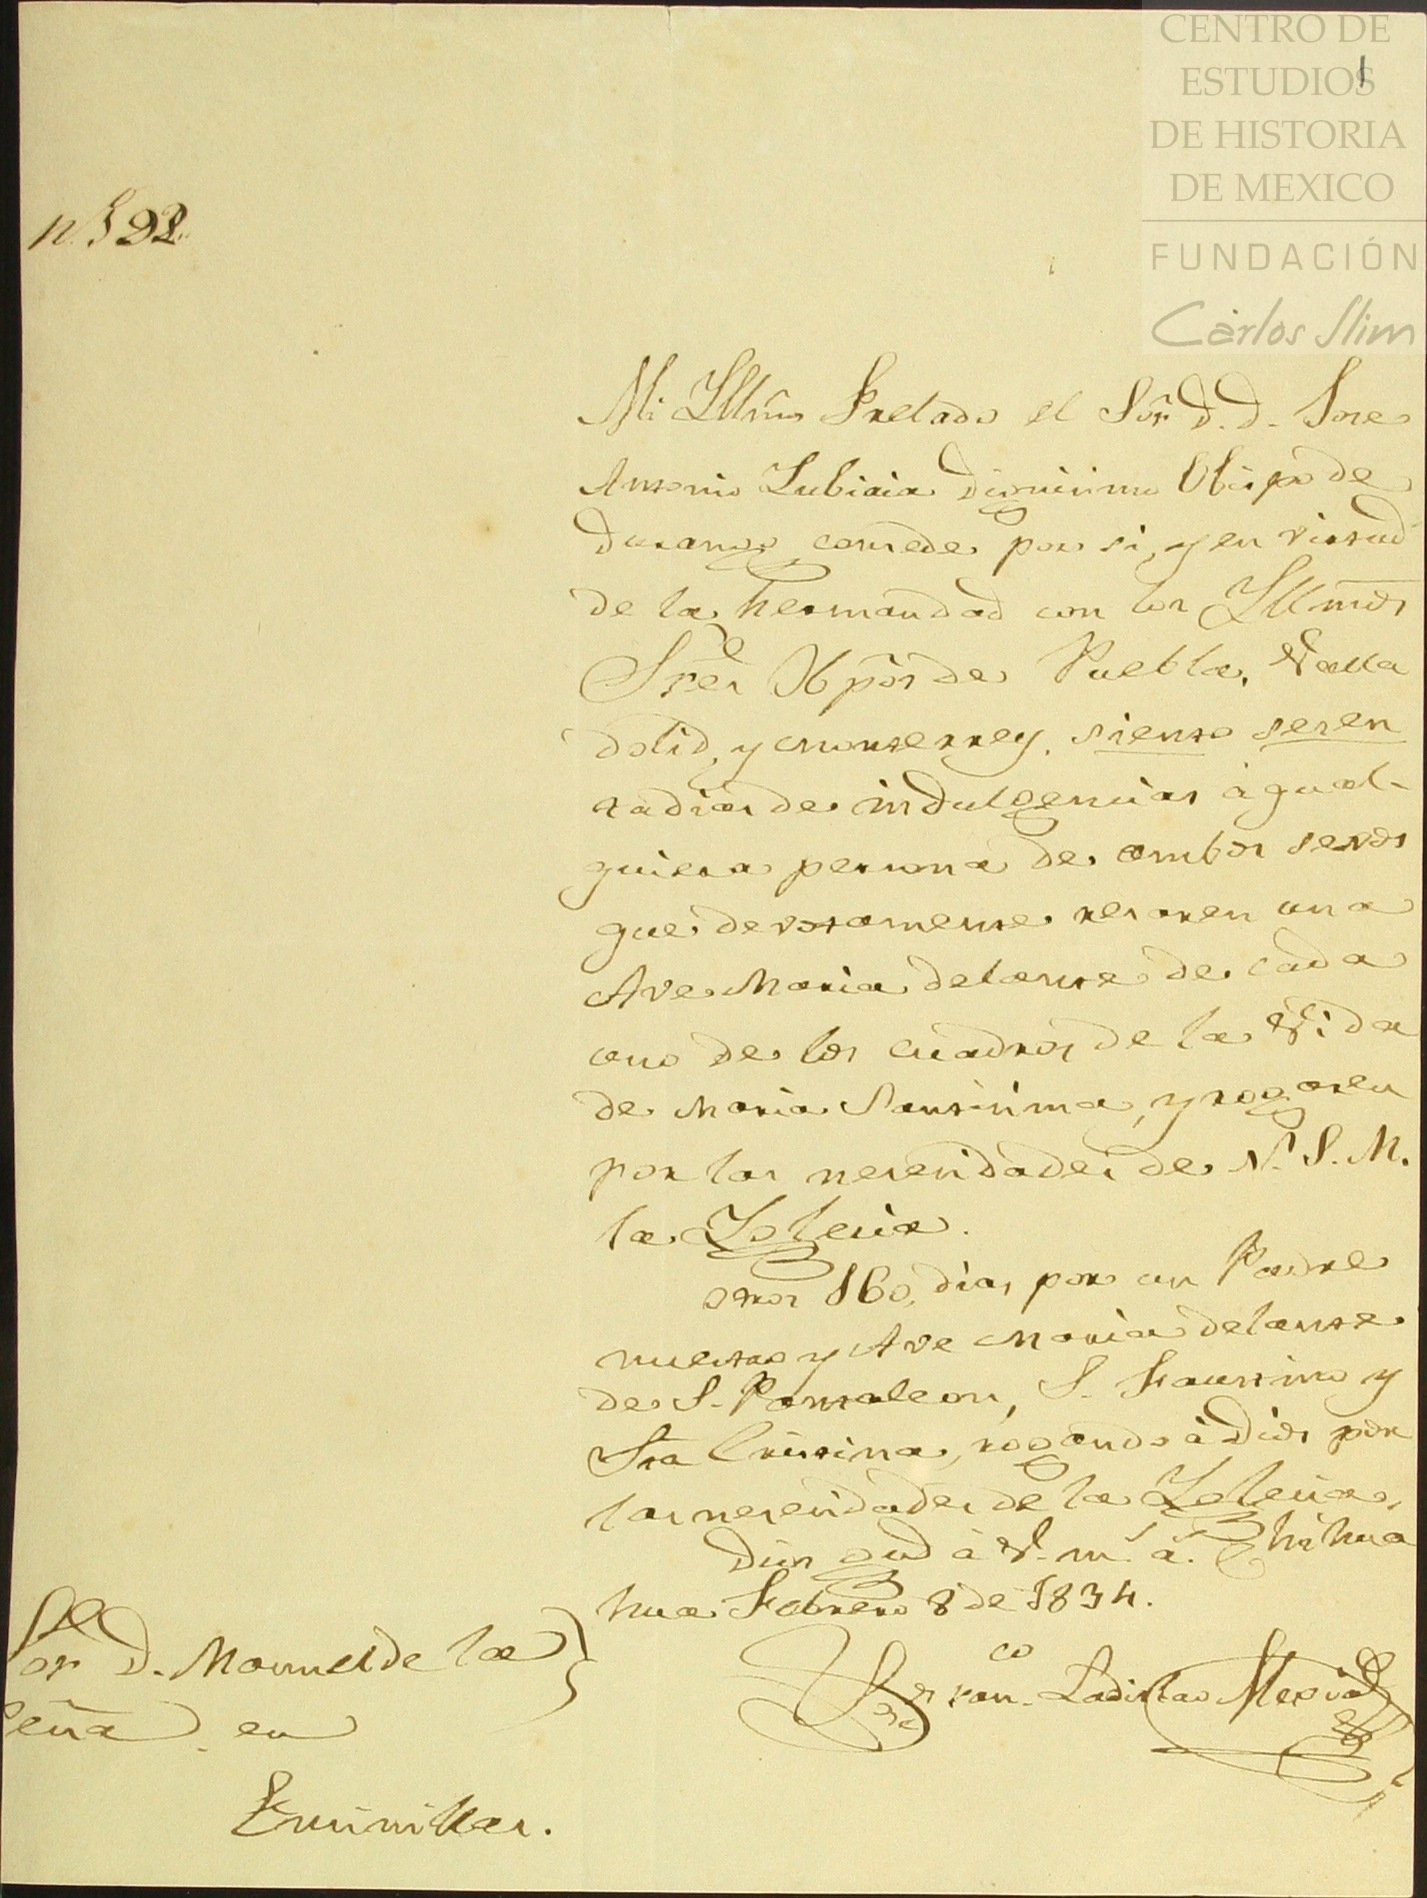 CENTRO DE
ESTUDIOS
DE HISTORIA
DE MEXICO
FUNDACIÓN
Carlos Slim
1
Mi Yllmõ Prelado el Sõr D. D. Jose
Antonio Zubiria dignisimo Obispo de
Durango, consede por si, y en virtud
de la hermandad con los Yllmõs
Sres Obpõs de Puebla, Valla
dolid, y Monterrey, siento sesen
ta dias de indulgencias á qual-
quiera persona de ambos sexos
que devotamente resaren una
Ave Maria delante de cada
uno de los cuadros de la Vida
de Maria Santisima, y rogaren
por las nesesidades de N. S. M.
la Yglesia.
otros 160, dias por un Padre
nuestro y Ave Maria delante
de S. Pantaleon, S. Faustino y
Sta Cristina, rogando á Dios por
las nesesidades de la Yglesia,
Dios gud á V. m.s a.s Chihua
hua Febrero 8 de 1834.
Fran.co Ladislao Mexia
Sor D. Manuel de la
Peña en